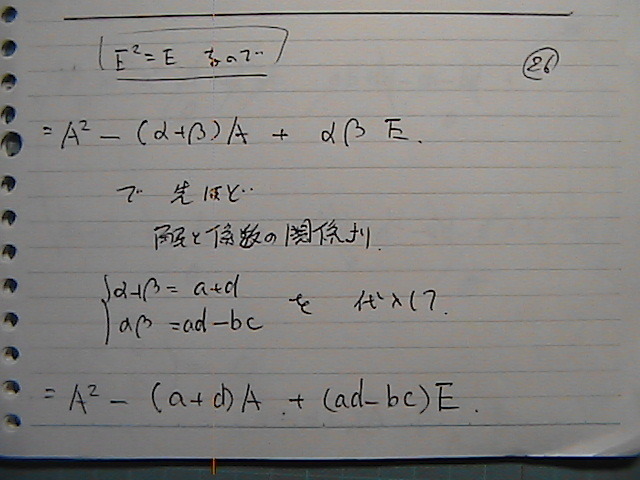 E²=E なので
26
= A² − (α+β)A + αβ E.
で 先ほど
解と係数の関係より.
α+β = a+d
を 代入して.
αβ = ad−bc
= A² − (a+d)A + (ad−bc)E.